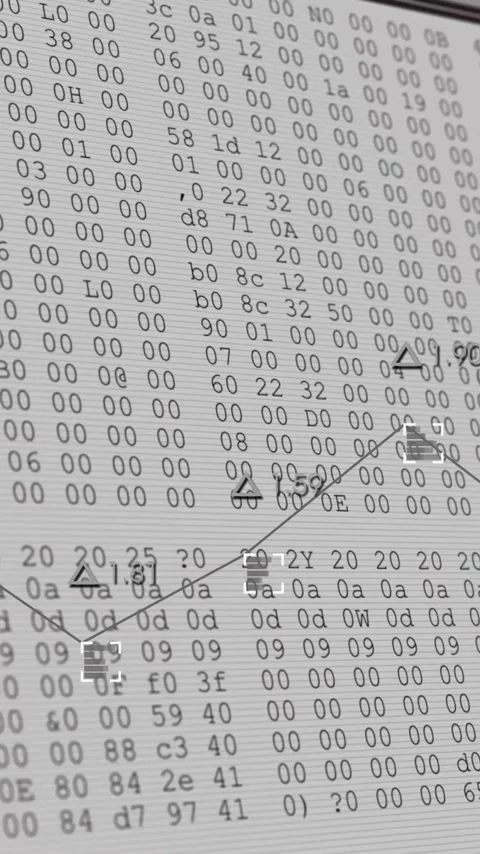 00 L0 00 3c 0a 01 00 00 00 N0 00 00 0B
00 38 00 20 95 12 00 00 00 00 00 00
00 00 00 06 00 40 00 1a 00 19 00
00 0H 00 00 00 00 00 00 00 00 00
00 00 00 58 1d 12 00 00 00 00 00
00 01 00 01 00 00 00 06 00 00
03 00 00 ,0 22 32 00 00 00 00
90 00 00 d8 71 0A 00 00 00 00
00 00 00 00 00 20 00 00 00 00
00 00 00 b0 8c 12 00 00 00 00
00 L0 00 b0 8c 32 50 00 00 T0
00 00 00 90 01 00 00 00 00
△ 1.90
00 00 00 07 00 00 00 04 00 00
00 0@ 00 60 22 32 00 00 00
00 00 00 00 00 00 D0 00 00 00
00 00 00 00 08 00 00 00 00 00
06 00 00 00 00 00 00 00 00 00
△ 1.59
00 00 00 00 00 00 0E 00 00 00
20 20 25 ?0 20 2Y 20 20 20 20
△ 1.81
0a 0a 0a 0a 0a 0a 0a 0a 0a 0a
0d 0d 0d 0d 0d 0d 0W 0d 0d
09 09 09 09 09 09 09 09 09
00 00 0f f0 3f 00 00 00 00 00
00 &0 00 59 40 00 00 00 00 00
00 00 88 c3 40 00 00 00 00 00
0E 80 84 2e 41 00 00 00 00 d0
00 84 d7 97 41 0) ?0 00 00 65